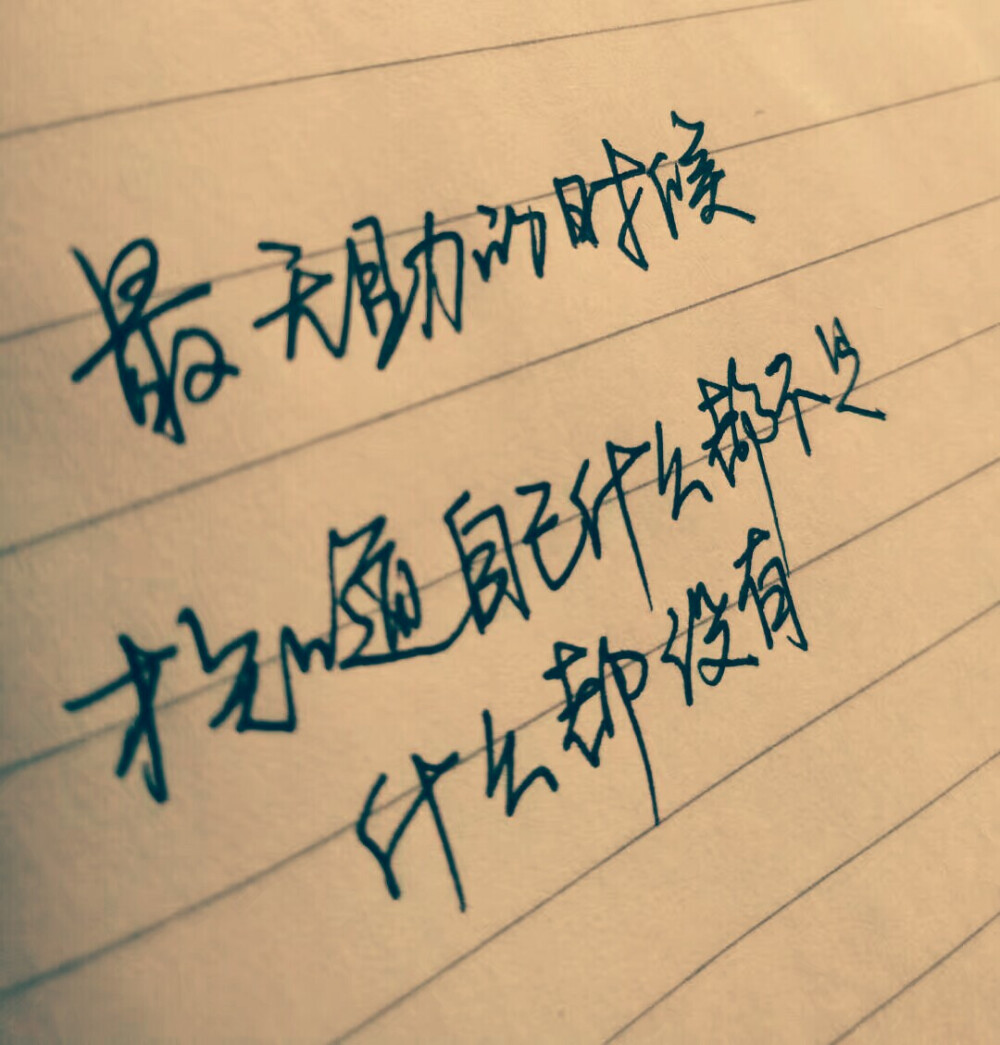 最无助的时候
才知道自己什么都不是
什么都没有